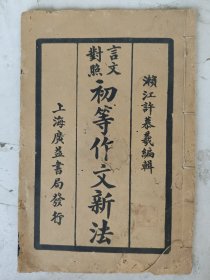 瀨江許慕羲編輯
言文對照
初等作文新法
上海廣益書局發行